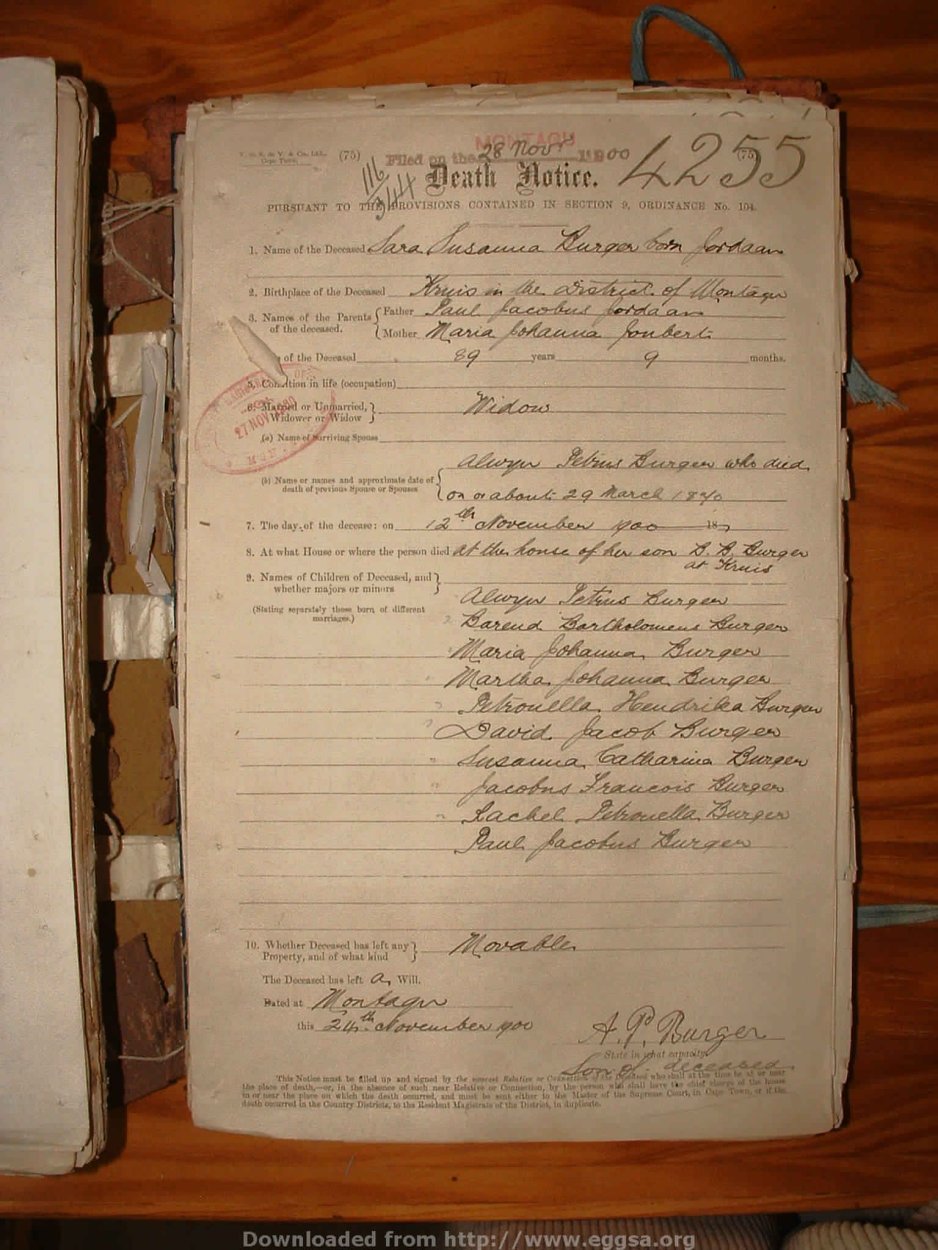 V. de R. de V. & Co., Ltd.,
Cape Town.
(75)
MONTAGU
Filed on the 28 Novr 1900
4255
(75)
116/344
Death Notice.
PURSUANT TO THE PROVISIONS CONTAINED IN SECTION 9, ORDINANCE No. 104.
1. Name of the Deceased Sara Susanna Burger born Jordaan
2. Birthplace of the Deceased Kruis in the District of Montagu
3. Names of the Parents of the deceased. Father Paul Jacobus Jordaan
Mother Maria Johanna Joubert
of the Deceased 89 years 9 months.
5. Condition in life (occupation)
6. Married or Unmarried, Widower or Widow Widow
27 NOV 1900
(a) Name of Surviving Spouse
(b) Name or names and approximate date of death of previous Spouse or Spouses Alwyn Petrus Burger who died
on or about 29 March 1870
7. The day of the decease: on 12th November 1900 18
8. At what House or where the person died At the house of her son B. B. Burger
at Kruis
9. Names of Children of Deceased, and whether majors or minors
(Stating separately those born of different marriages.)
Alwyn Petrus Burger
Barend Bartholomeus Burger
Maria Johanna Burger
Martha Johanna Burger
Petronella Hendrika Burger
David Jacob Burger
Susanna Catharina Burger
Jacobus Francois Burger
Rachel Petronella Burger
Paul Jacobus Burger
10. Whether Deceased has left any Property, and of what kind Movable
The Deceased has left a Will.
Dated at Montagu
this 24th November 1900
A. P. Burger
State in what capacity.
Son of deceased
This Notice must be filled up and signed by the nearest Relative or Connection of the Deceased who shall at the time be at or near
the place of death,—or, in the absence of such near Relative or Connection, by the person who shall have the chief charge of the house
in or near the place on which the death occurred, and must be sent either to the Master of the Supreme Court, in Cape Town, or if the
death occurred in the Country Districts, to the Resident Magistrate of the District, in duplicate.
Downloaded from http://www.eggsa.org